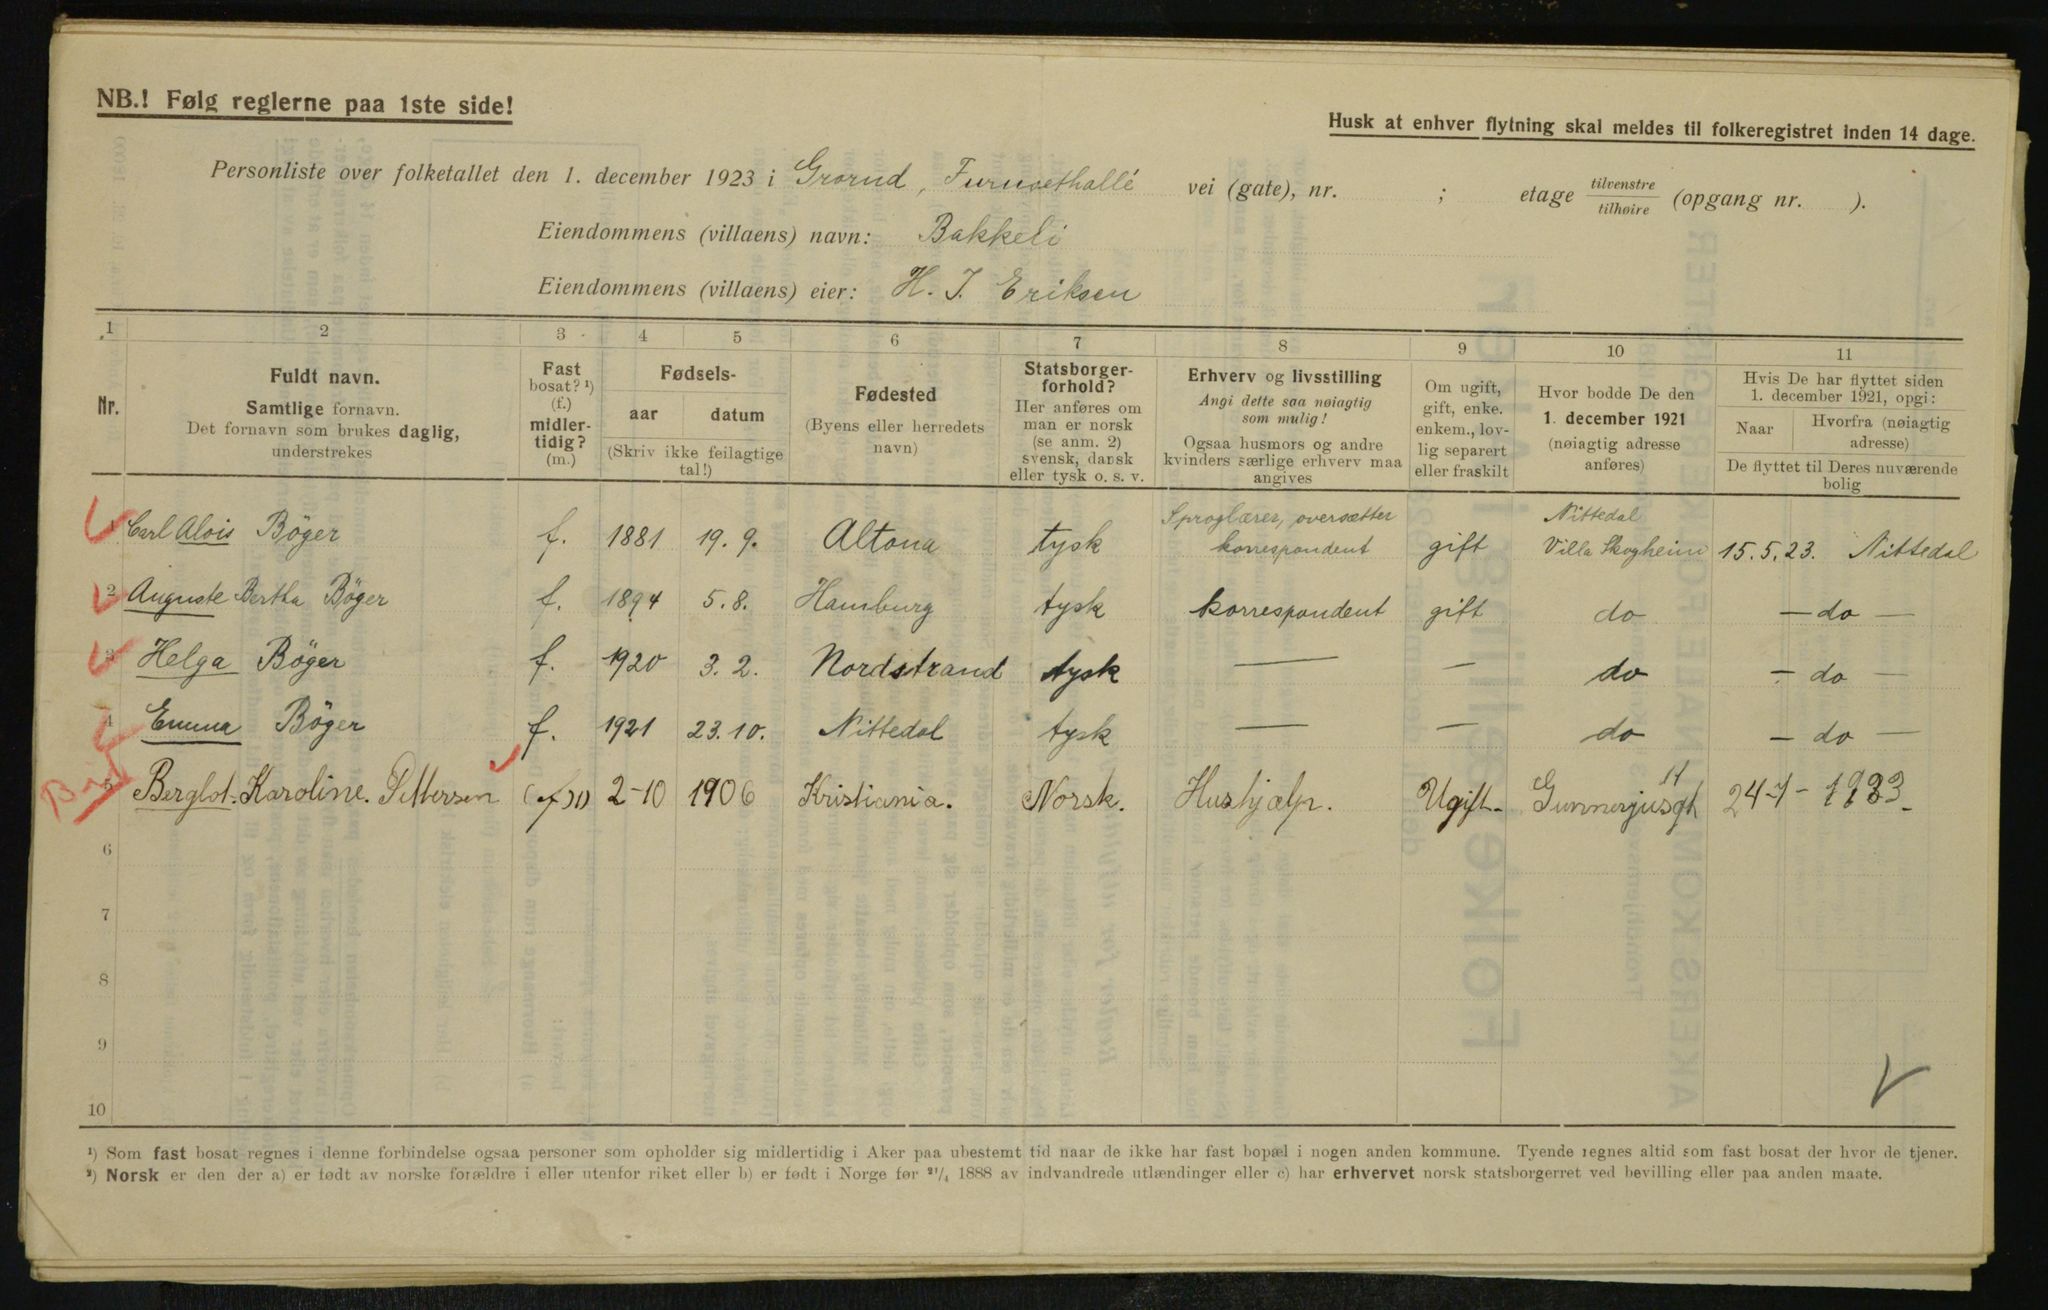 NB.! Følg reglerne paa 1ste side!
Husk at enhver flytning skal meldes til folkeregistret inden 14 dage.
Personliste over folketallet den 1. december 1923 i Grorud, Furusethallé vei (gate), nr. ; etage tilvenstre / tilhøire (opgang nr. ).
Eiendommens (villaens) navn: Bakkeli
Eiendommens (villaens) eier: H. J. Eriksen
1 2 3 4 5 6 7 8 9 10 11
Nr.
Fuldt navn.
Samtlige fornavn.
Det fornavn som brukes daglig,
understrekes
Fast
bosat? ¹)
(f.)
midler-
tidig?
(m.)
Fødsels-
aar datum
(Skriv ikke feilagtige
tal!)
Fødested
(Byens eller herredets
navn)
Statsborger-
forhold?
Her anføres om
man er norsk
(se anm. 2)
svensk, dansk
eller tysk o. s. v.
Erhverv og livsstilling
Angi dette saa nøiagtig
som mulig!
Ogsaa husmors og andre
kvinders særlige erhverv maa
angives
Om ugift,
gift, enke.
enkem., lov-
lig separert
eller fraskilt
Hvor bodde De den
1. december 1921
(nøiagtig adresse
anføres)
Hvis De har flyttet siden
1. december 1921, opgi:
Naar
Hvorfra (nøiagtig
adresse)
De flyttet til Deres nuværende
bolig
1 Carl Alois Böger f. 1881 19. 9. Altona tysk Sproglærer, oversætter korrespondent gift Nittedal Villa Skogheim 15. 5. 23. Nittedal
2 Auguste Bertha Böger f. 1894 5. 8. Hamburg tysk korrespondent gift do — do —
3 Helga Böger f. 1920 3. 2. Nordstrand tysk — — do — do —
4 Emma Böger f. 1921 23. 10. Nittedal tysk — — do — do —
5 Berglot. Karoline. Pettersen (f)1) 2-10 1906 Kristiania. Norsk. Hushjælp. Ugift. 24-7-1923
6
7
8
9
10
¹) Som fast bosat regnes i denne forbindelse ogsaa personer som opholder sig midlertidig i Aker paa ubestemt tid naar de ikke har fast bopæl i nogen anden kommune. Tyende regnes altid som fast bosat der hvor de tjener.
²) Norsk er den der a) er født av norske forældre i eller utenfor riket eller b) er født i Norge før ²¹/₄ 1888 av indvandrede utlændinger eller c) har erhvervet norsk statsborgerret ved bevilling eller paa anden maate.